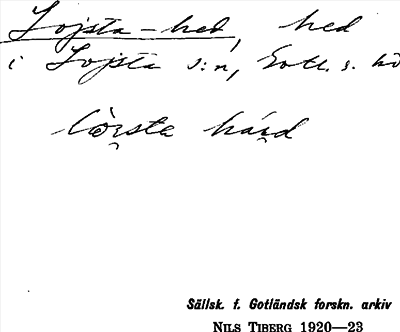 Lojsta-hed, hed
i Lojsta s:n, Gotl. s.
Sällsk. f. Gotländsk forskn. arkiv
NILS TIBERG 1920—23